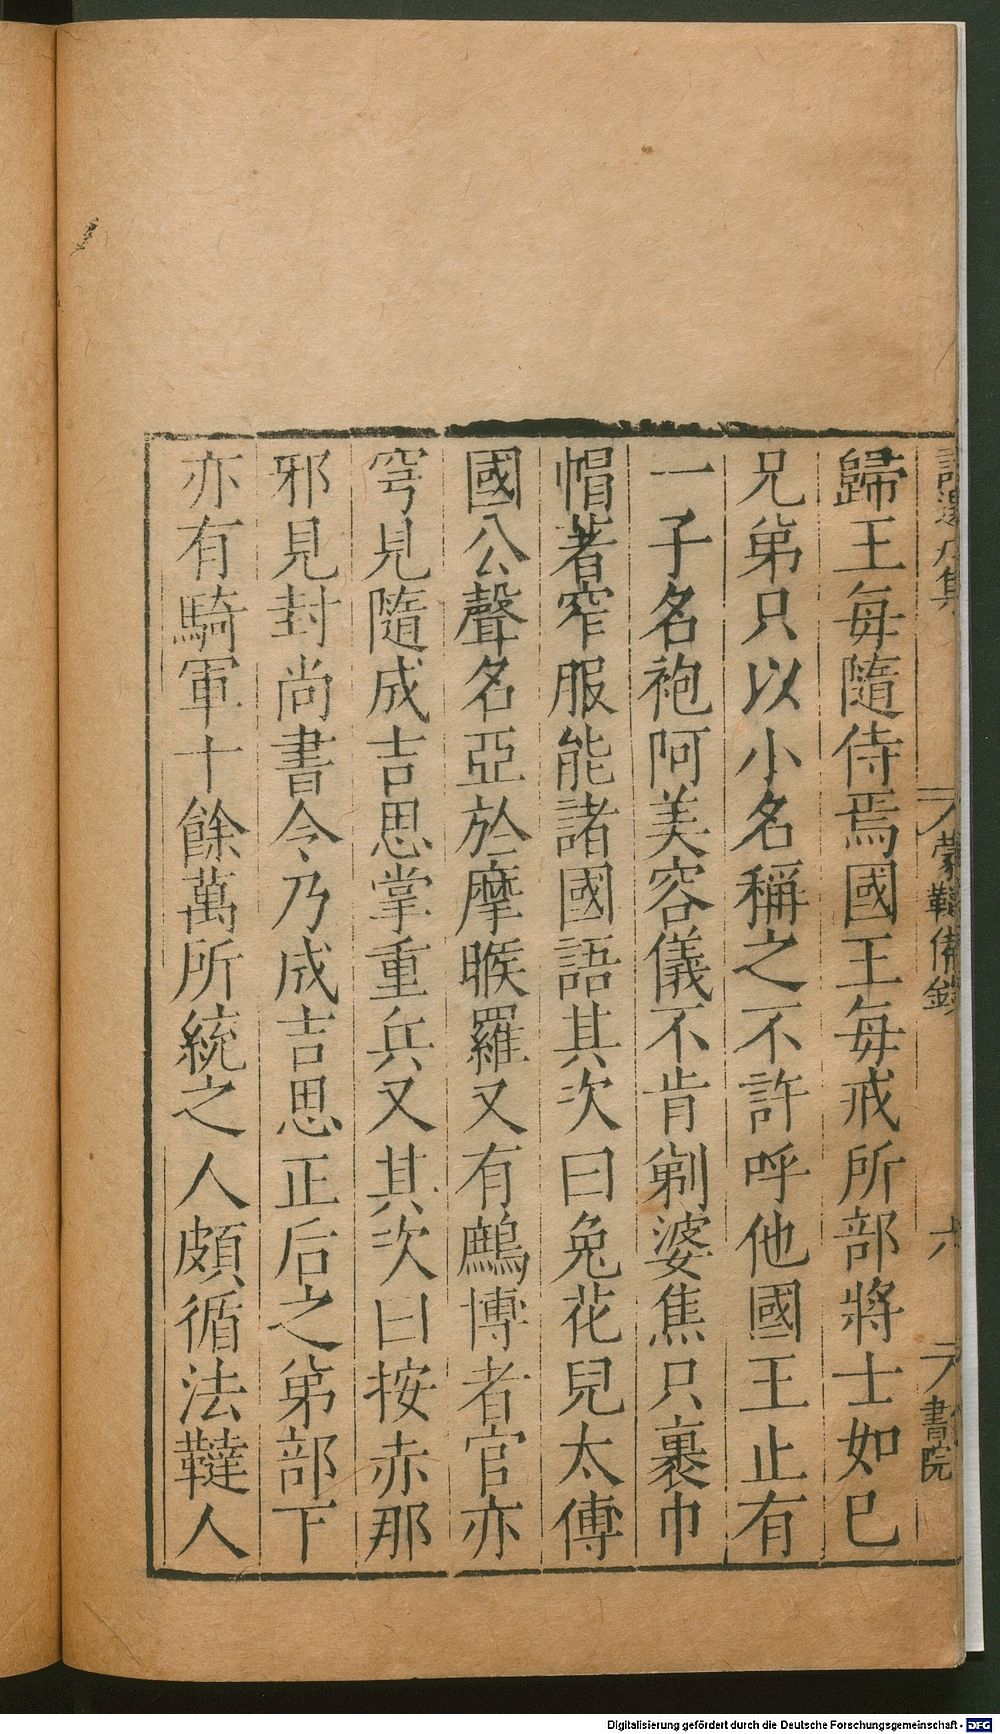 歸王每隨侍焉國王每戒所部將士如已
兄弟只以小名稱之不許呼他國王止有
一子名袍阿美容儀不肯剃婆焦只裹巾
帽著窄服能諸國語其次曰兔花兒太傅
國公聲名亞於摩睺羅又有鷓博者官亦
穹見隨成吉思掌重兵又其次曰按赤那
邪見封尚書令乃成吉思正后之弟部下
亦有騎軍十餘萬所統之人頗循法韃人
蒙韃備錄
六
書院
Digitalisierung gefördert durch die Deutsche Forschungsgemeinschaft - DFG